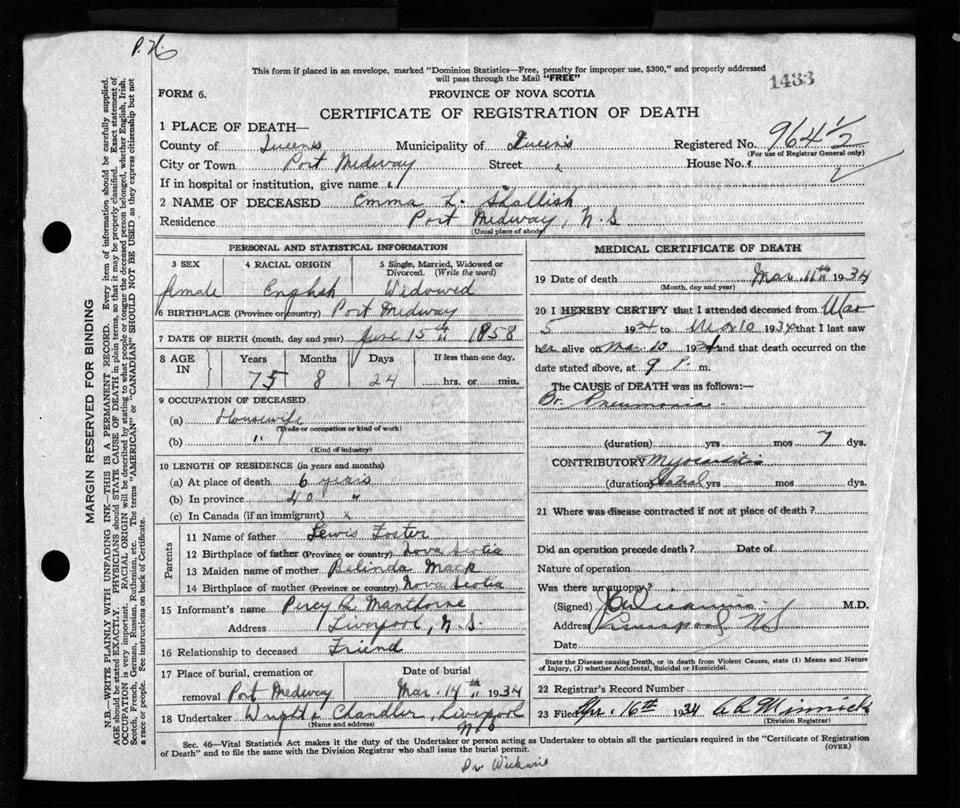 P. N.
1433
This form if placed in an envelope, marked "Dominion Statistics—Free, penalty for improper use, $300," and properly addressed
will pass through the Mail "FREE"
FORM 6.
PROVINCE OF NOVA SCOTIA
CERTIFICATE OF REGISTRATION OF DEATH
1 PLACE OF DEATH—
County of Queens Municipality of Queens Registered No. 964 1/2
(For use of Registrar General only)
City or Town Port Medway Street House No.
If in hospital or institution, give name
2 NAME OF DECEASED Emma L. Shallish
Residence Port Medway, N.S
(Usual place of abode)
PERSONAL AND STATISTICAL INFORMATION
3 SEX 4 RACIAL ORIGIN 5 Single, Married, Widowed or Divorced. (Write the word)
female English Widowed
6 BIRTHPLACE (Province or country) Port Medway
7 DATE OF BIRTH (month, day and year) June 15th 1858
8 AGE IN Years Months Days If less than one day,
75 8 24 hrs. or min.
9 OCCUPATION OF DECEASED
(a) Housewife
(Trade or occupation or kind of work)
(b) "
(Kind of industry)
10 LENGTH OF RESIDENCE (in years and months)
(a) At place of death 6 years
(b) In province 40 "
(c) In Canada (if an immigrant) x
Parents
11 Name of father Lewis Foster
12 Birthplace of father (Province or country) Nova Scotia
13 Maiden name of mother Belinda Mack
14 Birthplace of mother (Province or country) Nova Scotia
15 Informant's name Percy R. Manthorne
Address Liverpool, N.S.
16 Relationship to deceased Friend
17 Place of burial, cremation or removal Port Medway
Date of burial Mar. 14th 1934
18 Undertaker Wright & Chandler, Liverpool
(Name and address) NS
MEDICAL CERTIFICATE OF DEATH
19 Date of death Mar. 11th 1934
(Month, day and year)
20 I HEREBY CERTIFY that I attended deceased from Mar
5 1934 to Mar 10 1934 that I last saw
her alive on Mar 10 1934 and that death occurred on the
date stated above, at 9 P. m.
The CAUSE of DEATH was as follows:—
Br. Pneumonia
(duration) yrs mos 7 dys.
CONTRIBUTORY Myocarditis
(duration) Several yrs mos dys.
21 Where was disease contracted if not at place of death?
Did an operation precede death? Date of
Nature of operation
Was there an autopsy?
(Signed) M.D.
Address Liverpool NS
Date
State the Disease causing Death, or in death from Violent Causes, state (1) Means and Nature
of Injury, (2) whether Accidental, Suicidal or Homicidal.
22 Registrar's Record Number
23 Filed Apr. 16th 1934 C R Minnick
(Division Registrar)
Sec. 46—Vital Statistics Act makes it the duty of the Undertaker or person acting as Undertaker to obtain all the particulars required in the "Certificate of Registration
of Death" and to file the same with the Division Registrar who shall issue the burial permit.
(OVER)
Dr Wickwire
MARGIN RESERVED FOR BINDING
N.B.—WRITE PLAINLY WITH UNFADING INK—THIS IS A PERMANENT RECORD. Every item of information should be carefully supplied.
AGE should be stated EXACTLY. PHYSICIANS should STATE CAUSE OF DEATH in plain terms, so that it may be properly classified. Exact statement of
OCCUPATION is very important. RACIAL ORIGIN will be described by stating to what people or tongue the deceased person belonged, whether English, Irish,
Scotch, French, German, Russian, Ruthenian, etc. The terms "AMERICAN" or "CANADIAN" SHOULD NOT BE USED as they express citizenship but not
a race or people. See instructions on back of Certificate.